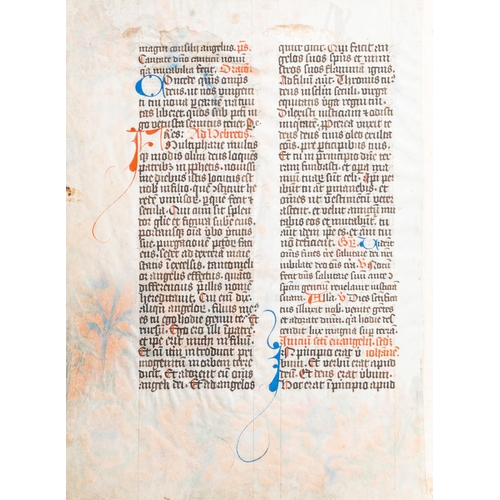 magni consilij angelus. ps.
Cantate dno canticu novu
qa mirabilia fecit. Oratio
Concede qs omps
deus. ut nos vnigeniti
tui nova per carne nativi
tas liberet. quos sub peccti iu
go vetusta servitus tenet. P
Ad hebreos.
Multipharie multis
qz modis olim deus loques
patribz in pphetis. novissi
me diebus istis locutus est
nobis in filio. que constituit here
dem universor. per que fecit et
secula. Qui cum sit splen
dor glie et figura substancie eius.
portansqz oia verbo virtutis
sue. purgacione peccator faci
ens. sedet ad dextera maie
statis i excelsis. tanto melior
angelis effectus. quanto
differencius p illis nomen
hereditavit. Cui em dixit
aliqn angelor. filius meus
es tu ego hodie genui
te. Et rursum. Ego ero illi in patre.
et ipe erit michi in filiu.
Et cu iteru introducit pri
mogenitum in orbem terre
dicit. Et adorent eu oms
angeli dei. Et ad angelos
quide dicit. Qui facit an
gelos suos spus et mini
stros suos flamma ignis.
Ad filiu aut. Thronus tu
us deus in seculu seculi. virga
equitatis virga regni tui.
Dilexisti iusticiam et odisti
iniquitatem. Pterea unxit te
deus deus tuus oleo exulta
cois. pre participibus tuis.
Et tu in principio dne ter
ram fundasti. et opera manu
um tuar sut celi. Ipi peri
but tu aut permanebis. et
omes ut vestimentu vetera
scent. et velut amictum mu
tabis eos et mutabut. tu
aut idem ipe es. et anni tui
non deficient. Gr. Viderut
oms fines tre salutare dei nri
iubilate deo ois tra. V Notum
fecit dns salutare suu ante
spem gencium revelavit iusticiam
suam. Allia. V Dies scifica
tus illuxit nob. venite getes
et adorate dnm. qa hodie de
scendit lux magna sup terra.
Iniciu sci euangelij. scdm
In principio erat v iohane.
bum. Et verbu erat apud
deu. Et deus erat verbum.
Hoc erat in principio apud